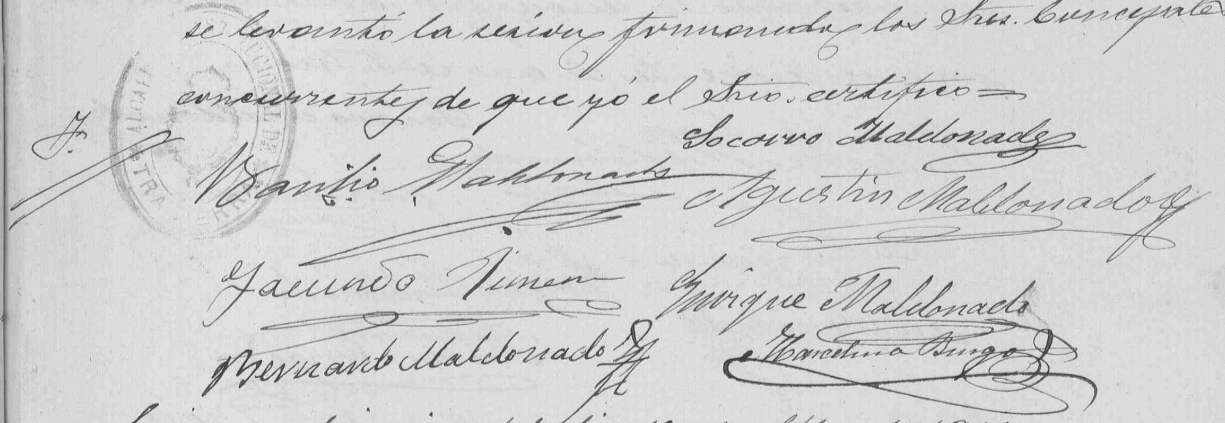 se levantó la sesion firmando los Sres. Concejales
concurrentes de que yó el Srio. certifico=
Socorro Maldonado
Basilio Maldonado
Agustin Maldonado
Facundo Jimen
Enrique Maldonado
Bernardo Maldonado
Marcelino Burgo